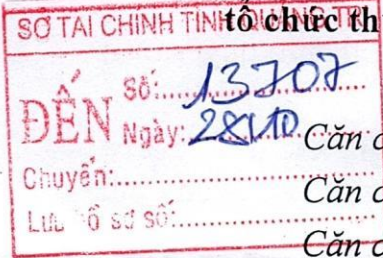 tổ chức th
SỞ TÀI CHÍNH TỈNH QUẢNG TRỊ
ĐẾN
Số: 13707
Ngày: 28/10
Chuyển:
Lưu hồ sơ số:
Căn c
Căn c
Căn c